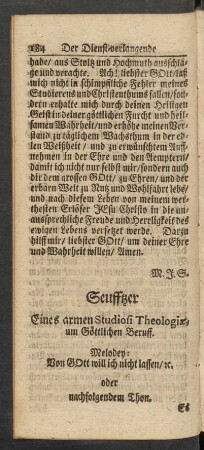 184 Der Dienst-verlangende
habe/ aus Stoltz und Hochmuth ausschla-
ge und verachte. Ach! liebster GOtt/ laß
mich nicht in schimpffliche Fehler meines
Studierens und Christenthums fallen/ son-
dern erhalte mich durch deinen Heiligen
Geist in deiner göttlichen Furcht und heil-
samen Wahrheit/ und erhöhe meinen Ver-
stand zu täglichem Wachsthum in der ed-
len Weißheit/ und zu erwünschtem Auff-
nehmen in der Ehre und den Aemptern/
damit ich nicht nur selbst mir/ sondern auch
dir dem grossen GOtt/ zu Ehren/ und der
erbarn Welt zu Nutz und Wohlfahrt lebe/
und nach diesem Leben von meinem wer-
thesten Erlöser JEsu Christo in die un-
aussprechliche Freude und Herrlichkeit des
ewigen Lebens versetzet werde. Darzu
hilff mir/ liebster GOtt/ um deiner Ehre
und Wahrheit willen/ Amen.
M. J. S.
Seufftzer
Eines armen Studiosi Theologiæ,
um Göttlichen Beruff.
Melodey:
Von GOtt will ich nicht lassen/ ꝛc.
oder
nachfolgendem Thon.